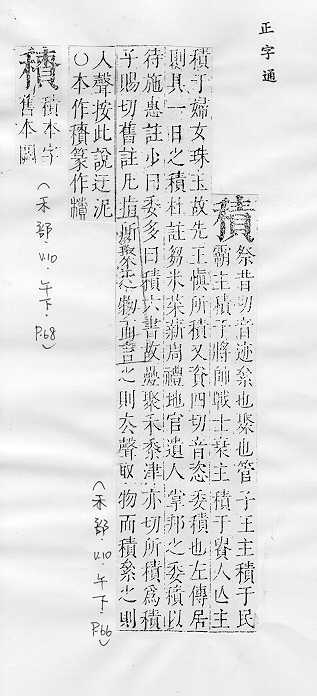 正字通
積
祭昔切音迹絫也聚也管子王主積于民
霸主積于將帥戰士衰主積于貴人亾主
積于婦女珠玉故先王愼所積又資四切音恣委積也左傳居
則具一日之積杜註芻米菜薪周禮地官遺人掌邦之委積以
待施惠註少曰委多曰積六書故叢聚禾黍津亦切所積爲積
子賜切舊註凡指所聚之物而言之則去聲取物而積絫之則
入聲按此說迂泥
○本作積篆作
積本字
舊本闕
(禾部.V.10.午下.P.66)
(禾部.V.10.午下.P.68)